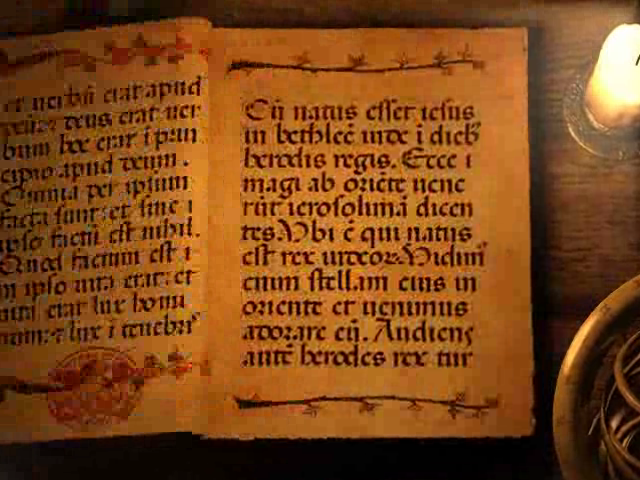 et uerbũ erat apud
deũ: et deus erat uer
bum hoc erat i prin
cipio apud deum.
Omnia per ipsum
facta sunt: et sine i
ipso factũ est nihil.
Quod factum est i
in ipso uita erat: et
uita erat lux homi
num: et lux i tenebris
Cũ natus esset iesus
in bethleẽ iude i dieb'
herodis regis. Ecce i
magi ab oriẽte uene
rũt ierosolimã dicen
tes. Vbi ẽ qui natus
est rex iudeor. Vidim'
enim stellam eius in
oriente et uenimus
adorare eũ. Audiens
autẽ herodes rex tur